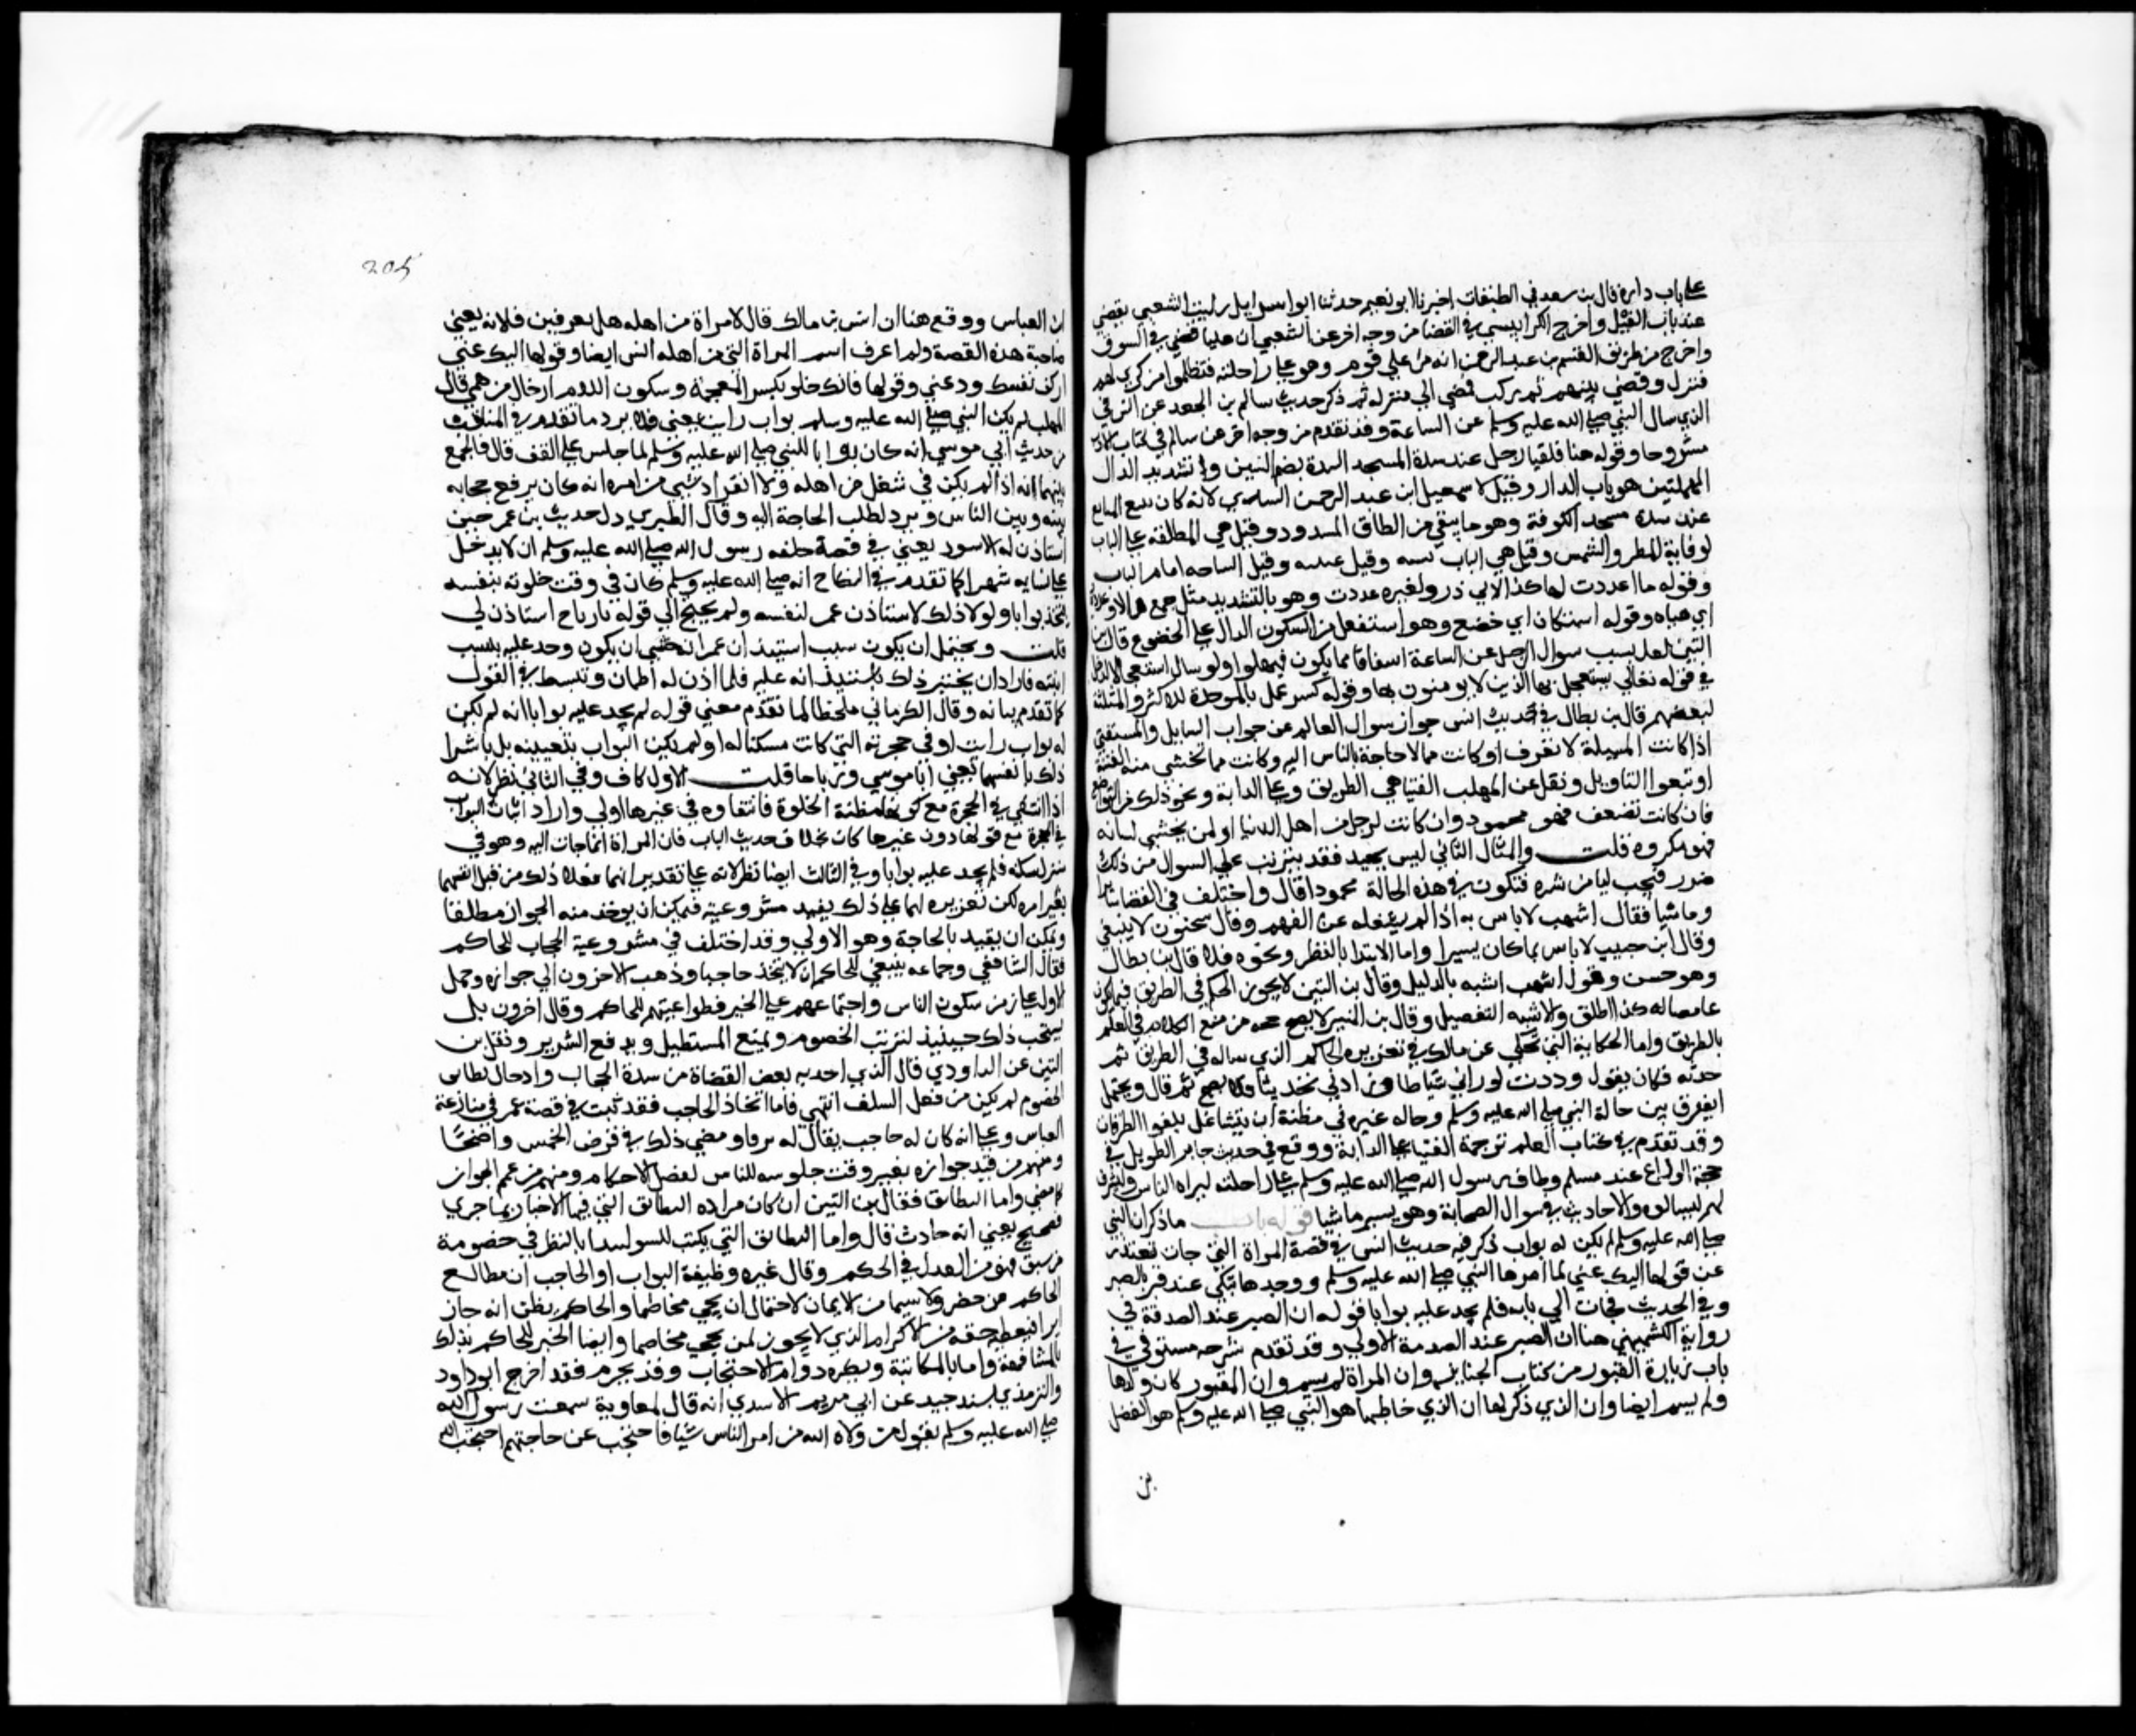 علي باب داره قال بن سعد في الطبقات اخبرنا ابو نعيم حدثنا ابو اسرايل رايت الشعبي يقضي
عند باب الفيل واخرج الكرابيسي في القضا من وجه اخر عن الشعبي ان عليا قضي في السوق
واخرج من طريق القسم بن عبد الرحمن انه مر علي قوم وهو علي راحلته فتظلموا من كري لهم
فنزل وقضي بينهم ثم ركب فمضي الي منزله ثم ذكر حديث سالم بن الجعد عن انس في
الذي سال النبي صلي الله عليه وسلم عن الساعة وقد تقدم من وجه اخر عن سالم في كتاب الادب
مشروحا وقوله هنا فلقينا رجل عند سدة المسجد السدة بضم السين وتشديد الدال
المهملتين هو باب الدار وقيل لاسمعيل ابن عبد الرحمن السدي لانه كان يبيع المقانع
عند سدة مسجد الكوفة وهو ما يبقي من الطاق المسدود وقيل هي المظلة علي الباب
لوقاية المطر والشمس وقيل هي الباب نفسه وقيل عتبته وقيل الساحه امام الباب
وقوله ما اعددت لها كذا لابي ذر ولغيره عددت وهو بالتشديد مثل جمع مالا وعدده
اي هياه وقوله استكان اي خضع وهو استفعل من السكون الدال علي الخضوع قال بن
التين لعل سبب سوال الرجل عن الساعة اشفاقا مما يكون فيها ولو سال استعجالا لدخل
في قوله تعالي يستعجل بها الذين لا يومنون بها وقوله كبير عمل بالموحدة للاكثر وبالمثلثة
لبعضهم قال بن بطال في حديث انس جواز سوال العالم عن جواب السايل والمستفتي
اذا كانت المسيلة لا تعرف او كانت مما لا حاجة بالناس اليه وكانت مما تخشي منه الفتنة
او تبعوا التاويل ونقل عن المهلب الفتيا هي الطريق وعلي الدابة ونحو ذلك من التواضع
فان كانت لضعيف فهو محمود وان كانت لرجل من اهل الدنيا او لمن يخشي لسانه
فهو مكروه قلت والمثال الثاني ليس بجيد فقد يترتب علي السوال من ذلك
ضرر فيجب ليامن شره فتكون في هذه الحالة محمودا قال واختلف في القضا سايرا
وماشيا فقال اشهب لا باس به اذا لم يشغله عن الفهم وقال سحنون لا ينبغي
وقال ابن حبيب لا باس بما كان يسيرا واما الابتدا بالنظر ونحوه فلا قال بن بطال
وهو حسن وقول اشهب اشبه بالدليل وقال بن التين لا يجوز الحكم في الطريق فيما يكون
غامضا له كذا اطلق ولاشبه التفصيل وقال بن المنير لا يصح حجه من منع الكلام في العلم
بالطريق واما الحكاية التي تحكي عن مالك في تعزيره الحاكم الذي ساله في الطريق ثم
حدثه فكان يقول وددت لو زادني سياطا وزادني تحديثا فلا يصح ثم قال ويحتمل
ان يفرق بين حالة النبي صلي الله عليه وسلم وحاله غيره في مظنة ان يتشاغل بلغو الطرقات
وقد تقدم في كتاب العلم ترجمة الفتيا علي الدابة ووقع في حديث جابر الطويل في
حجة الوداع عند مسلم وطاف رسول الله صلي الله عليه وسلم علي راحلته ليراه الناس وليشرف
لهم ليسالوه والاحاديث في سوال الصحابة وهو يسير ماشيا قوله باب ما ذكر ان النبي
صلي الله عليه وسلم لم يكن له بواب ذكر فيه حديث انس في قصة المراة التي جات تعتذر
عن قولها اليك عني لما امرها النبي صلي الله عليه وسلم ووجدها تبكي عند قبر بالصبر
وفي الحديث فجات الي بابه فلم تجد عليه بوابا قوله ان الصبر عند الصدقة في
رواية الكشميهني هنا ان الصبر عند الصدمة الاولي وقد تقدم شرحه مستوفي في
باب زيارة القبور من كتاب الجنايز وان المراة لم تسم وان المقبور كان ولدها
ولم يسم ايضا وان الذي ذكر لها ان الذي خاطبها هو النبي صلي الله عليه وسلم هو الفضل
بن
205
ابن العباس ووقع هنا ان انس بن مالك قال لامراة من اهله هل تعرفين فلانه يعني
صاحبة هذه القصة ولم اعرف اسم المراة التي من اهله انس ايضا وقولها اليك عني
اي كف نفسك ودعني وقولها فانك خلو بكسر المعجمة وسكون اللام اي خال من همي قال
المهلب لم يكن النبي صلي الله عليه وسلم بواب راتب يعني فلا يرد ما تقدم في المناقب
من حديث ابي موسي انه كان بوابا للنبي صلي الله عليه وسلم لما جلس علي القف قال فالجمع
بينهما انه اذا لم يكن في شغل من اهله ولا انفراد بشي من امره انه كان يرفع حجابه
بينه وبين الناس ويبرد لطلب الحاجة اليه وقال الطبري دل حديث بن عمر حين
استاذن له الاسود يعني في قصة حلفه رسول الله صلي الله عليه وسلم ان لا يدخل
علي نسايه شهرا كما تقدم في النكاح انه صلي الله عليه وسلم كان في وقت خلوته بنفسه
يتخذ بوابا ولولا ذلك لاستاذن عمر لنفسه ولم يحتج الي قوله يا رباح استاذن لي
قلت ويحتمل ان يكون سبب استيذان عمر انه خشي ان يكون وجد عليه بسبب
ابنته فاراد ان يختبر ذلك باستيذانه عليه فلما اذن له اطمان وتبسط في القول
كما تقدم بيانه وقال الكرماني ملخصا لما تقدم معني قوله لم يجد عليه بوابا انه لم يكن
له بواب راتب او في حجرته التي كانت مسكنا له او لم يكن البواب بتعيينه بل باشرا
ذلك بانفسهما يعني ابا موسي ورباحا قلت الاول كاف وفي الثاني نظر لانه
اذا انتفي في الحجرة مع كونها مظنة الخلوة فانتفاوه في غيرها اولي واراد اثبات البواب
في الحجرة مع قولها دون غيرها كان بخلاف حديث الباب فان المراة انما جات اليه وهو في
منزل سكنه فلم تجد عليه بوابا وفي الثالث ايضا نظر لانه علي تقدير انهما فعلا ذلك من قبل انفسهما
بغير امره لكن تقريره لهما علي ذلك يفيد مشروعية فيمكن ان يوخذ منه الجواز مطلقا
ويمكن ان يقيد بالحاجة وهو الاولي وقد اختلف في مشروعية الحجاب للحاكم
فقال الشافعي وجماعه ينبغي للحاكم ان لا يتخذ حاجبا وذهب الاخرون الي جوازه وحمل
الاول علي زمن سكون الناس واجتماعهم علي الخير فطواعيتهم للحاكم وقال اخرون بل
يستحب ذلك حينيذ لترتيب الخصوم ومنع المستطيل ودفع الشرير ونقل بن
التين عن الداودي قال الذي احدثه بعض القضاة من سدة الحجاب وادخال بطاق
الخصوم لم يكن من فعل السلف انتهي فاما اتخاذ الحاجب فقد ثبت في قصة عمر في منازعة
العباس وعلي انه كان له حاجب يقال له يرفا ومضي ذلك في فرض الخمس واضحا
ومنهم من قيد جوازه بغير وقت جلوسه للناس لفصل الاحكام ومنهم من عمم الجواز
كما مضي واما البطايق فقال بن التين ان كان مراده البطايق التي فيها الاخبار بما جري
فصحيح يعني انه حادث قال واما البطايق التي يكتب للسبق ليبدا بالنظر في خصومة
من سبق فهو من العدل في الحكم وقال غيره وظيفة البواب او الحاجب ان يطالع
الحاكم من حضر ولا سيما من الاعيان لاحتمال ان يجي مخاصما والحاكم يظن انه جاز
ايرا فيعطيه حقه من الاكرام الذي لا يجوز لمن يجي مخاصما وايضا الخبر للحاكم بذلك
بالمشافهة واما بالمكاتبة ويكره دوام الاحتجاب وقد يحرم فقد اخرج ابو داود
والترمذي بسند جيد عن ابي مريم الاسدي انه قال لمعاوية سمعت رسول الله
صلي الله عليه وسلم يقول من ولاه الله من امر الناس شيا فاحتجب عن حاجتهم احتجب الله